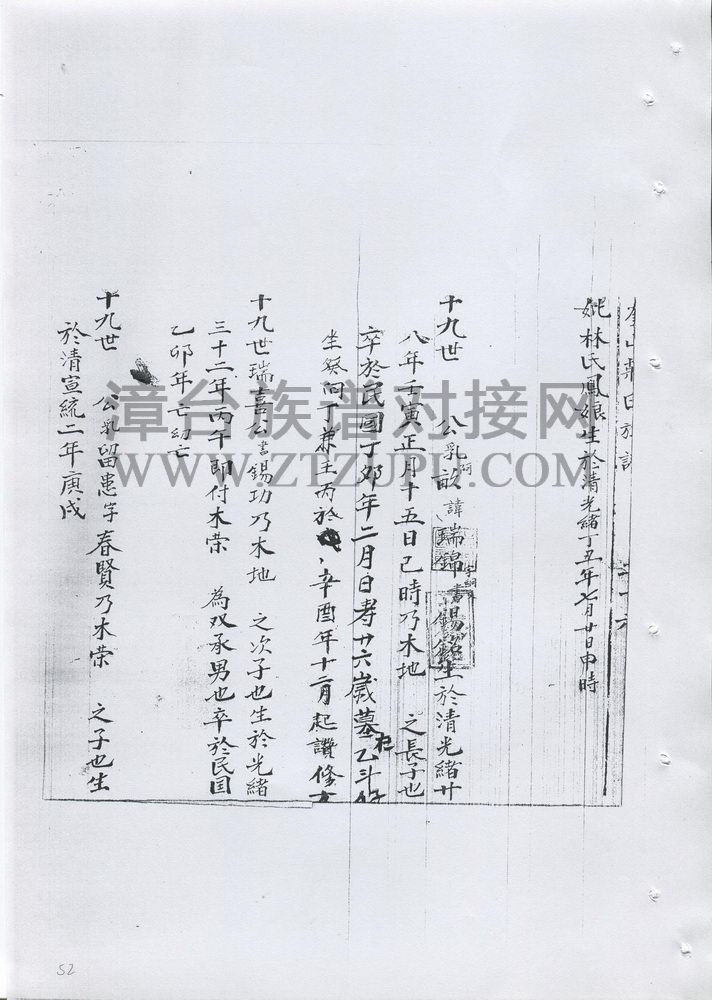 妣林氏鳳娘生於清光緒丁丑年七月廿日申時
十九世 公乳畝諱瑞錦書錫銘生於清光緒廿
八年壬寅正月十五日巳時乃木地 之長子也
卒於民國丁卯年二月日寿廿六歲墓在乙斗
坐癸向丁兼壬丙於 辛酉年十二月起讚修
十九世瑞喜公書錫功乃木地 之次子也生於光緒
三十二年丙午即付木荣 為双承男也卒於民国
乙卯年亡幼亡
十九世 公乳留患字春賢乃木荣 之子也生
於清宣統二年庚戌
漳台族谱对接网
WWW.ZTZUPU.COM
52